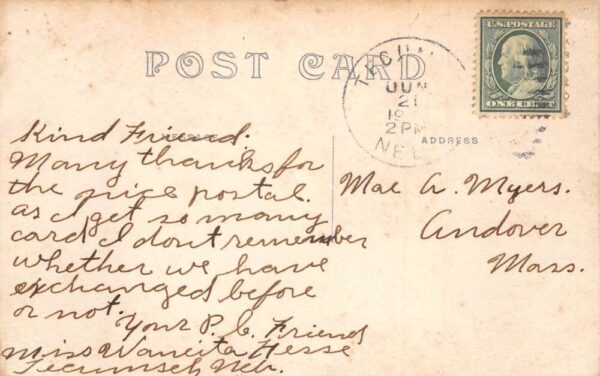 POST CARD
TECUM
JUN
21
19
2PM
NEB
U.S. POSTAGE
ONE CENT
ADDRESS
Kind Friend.
Many thanks for
the nice postal.
as I get so many
card I dont remember
whether we have
exchanged before
or not.
Your P. C. Friend
Miss Waneita Hesse
Tecumseh Neb.
Mae A. Myers.
Andover
Mass.